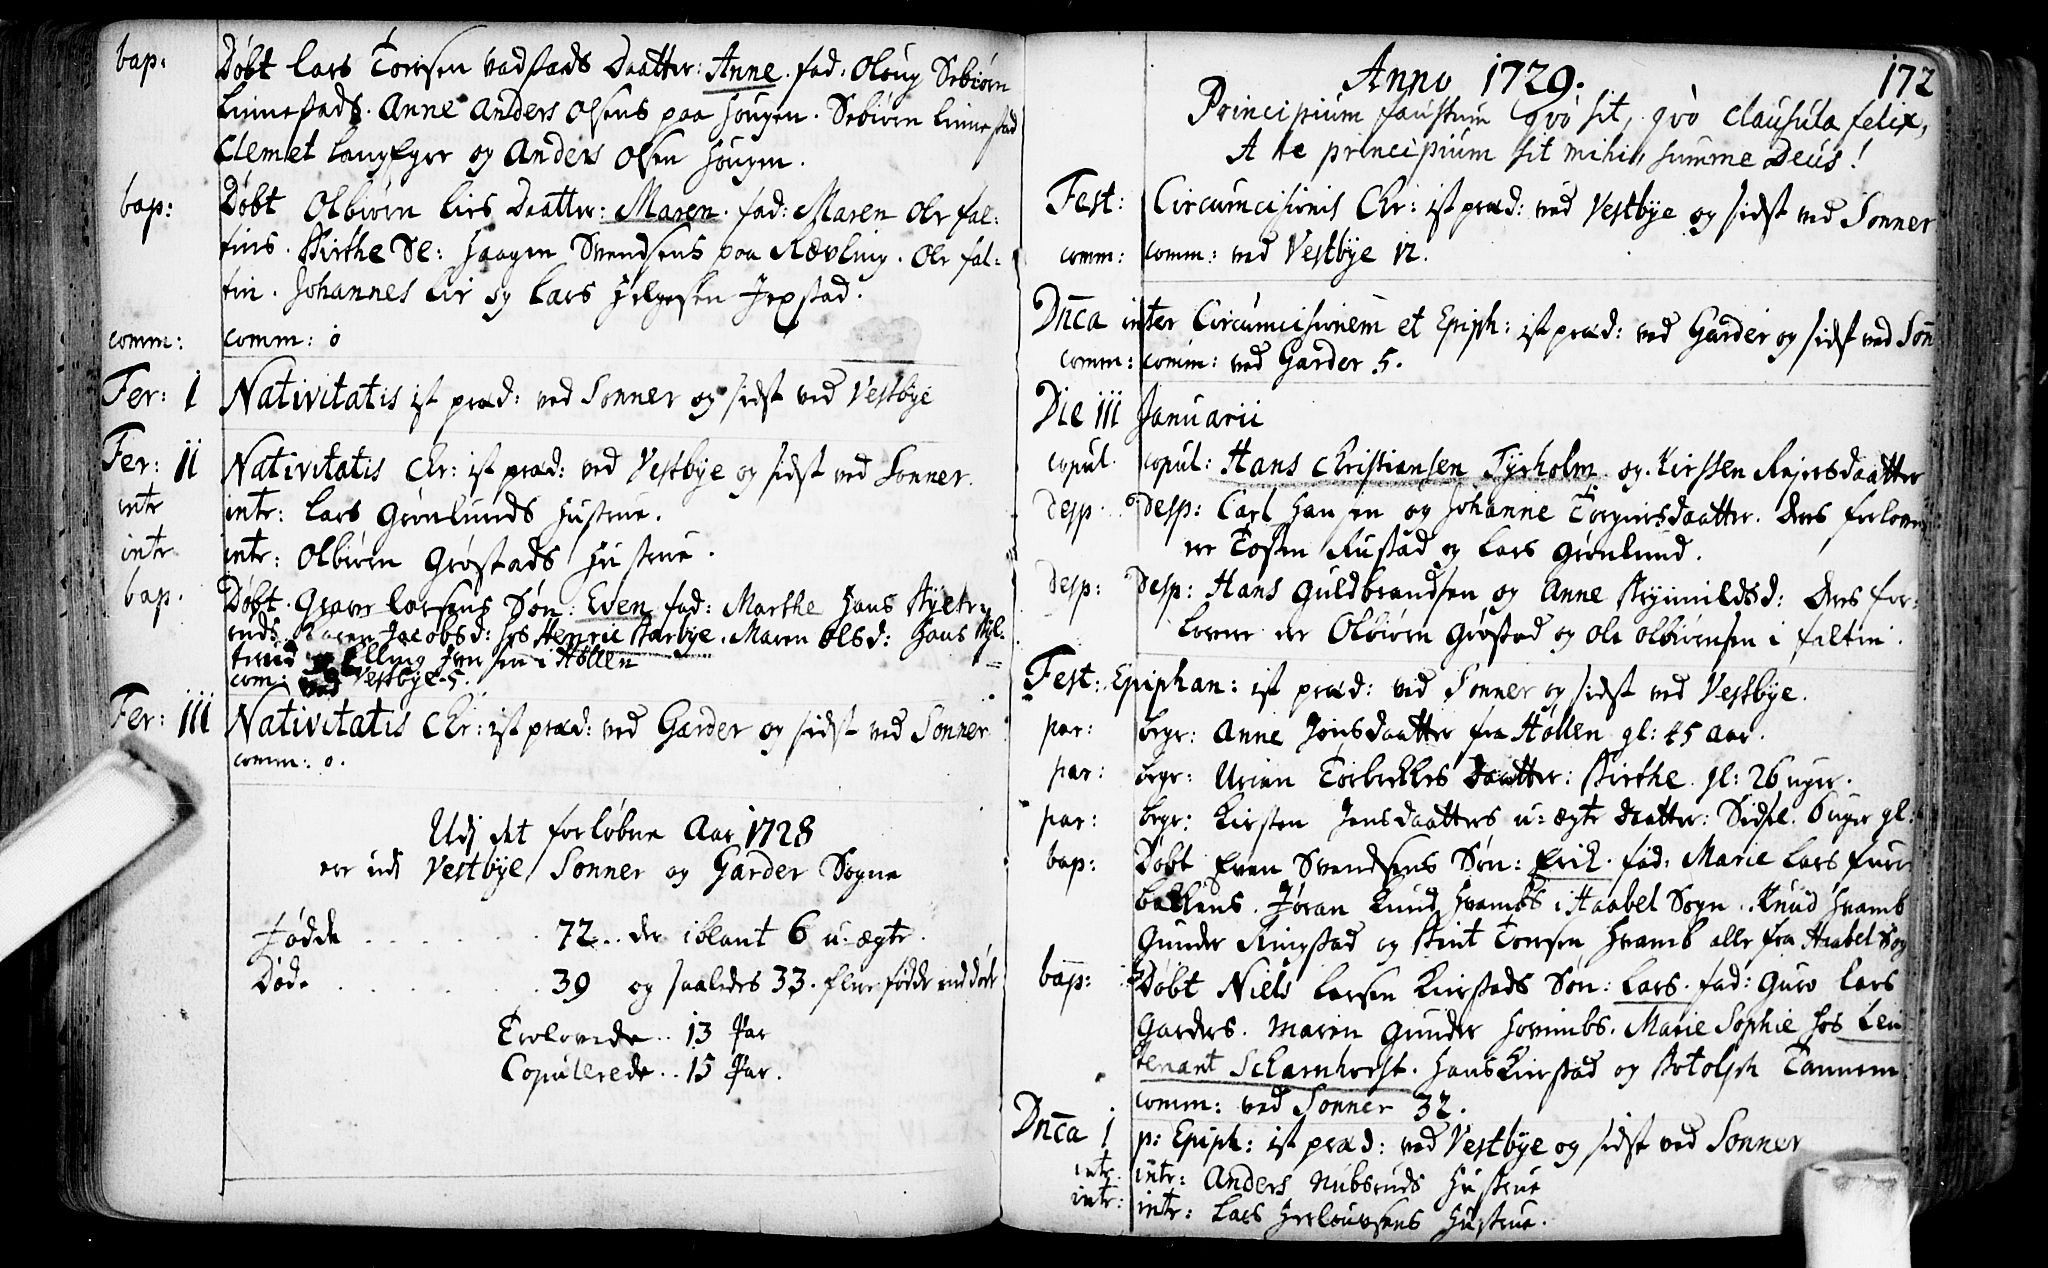 bap: Døbt Lars Torsen Vadstads Daatter: Anne. fad: Oloug Sebiørn
Linnestads. Anne Anders Olsens paa Hougen. Sebiørn Linnestad
Clemet Langeger og Anders Olsen Hougen.
bap: Døbt Olbiørn Lies Daatter: Maren. fad: Maren Ole Fal-
tins. Birthe De: Haagen Svendsens paa Revling. Ole Fal-
tin. Johannes Lie og Lars Helgesen Jepstad.
comm: comm: 0
Fer: I Nativitatis ist præd: ved Sonner og sidst ved Vestbÿe
Fer: II Nativitatis Chr: ist præd: ved Vestbÿe og sidst ved Sonner.
intr intr: Lars Grønlunds Hustrue.
intr intr: Olbiørn Grøstads Hustrue.
bap. Døbt. Larsens Søn: Even fad: Marthe Hans Kylt-
ruds. Karen Jacobsd: hos Henric Aarbye. Maren Olsd: Hans Kÿl-
trud og Elling Iversen i Høllen
com: ved Vestbÿe 5.
Fer: III Nativitatis Chr: ist præd: ved Garder og sidst ved Sonner
comm: 0.
Udj det forløbne Aar 1728
ere udi Vestbÿe Sonner og Garder Sogne
Fødde . . . . . . . 72 . . der iblant 6 u-ægte.
Døde . . . . . . . . 39 og saaledes 33. flere fødde end døde
Trolovede . . 13 Par
Copulerede . . 15 Par.
Anno 1729. 172
Principium faustum qvò sit, qvò clausula felix,
A te principium sit mihi, summe Deus!
Fest: Circumcisionis Chr: ist præd: ved Vestbÿe og sidst ved Sonner
comm: comm: ved Vestbÿe 12.
Dnca inter Circumcisionem et Epiph: ist præd: ved Garder og sidst ved Son
comm: comm: ved Garder 5.
Die III Januarii
copul. copul: Hans Christiansen Tÿrholm og Kirsten Rejersdaatter
desp: desp: Carl Hansen og Johanne Torgiersdaatter. deres forlover
ere Tosten Rustad og Lars Grønlund.
desp: desp: Hans Guldbrandsen og Anne Brÿnnildsd: deres for-
lovere ere Olbiørn Grøstad og Ole Olbiørnsen i Faltin.
Fest: Epiphan: ist præd: ved Sonner og sidst ved Vestbÿe.
par: begr: Anne Jonsdaatter fra Høllen gl: 45 Aar.
par: begr: Urian Torbekkes Daatter: Birthe gl: 26 uger.
par: begr: Kirsten Jensdaatters u-ægte Daatter: Sidsel. 6 uger gl:
bap: Døbt Even Svendsens Søn: Erik. fad: Marie Lars Fure-
bakkens. Jøran Knud Hvambs i Haabel Sogn. Knud Hvamb
Gunder Ringstad og Torsen Hvamb alle fra Haabel Sog
bap: Døbt Niels Larsen Kierstads Søn: Lars. fad: Guro Lars
Garders. Maren Gunder Hovimbs. Marie Sophie hos Leu
tenant Scharnhorst. Hans Kierstad og Botolph Tannem
comm: ved Sonner 32.
Dnca I p: Epiph: ist præd: ved Vestbÿe og sidst ved Sonner
intr. intr: Anders Nubseruds Hustrue
intr: intr: Lars Herlouvsens Hustrue.